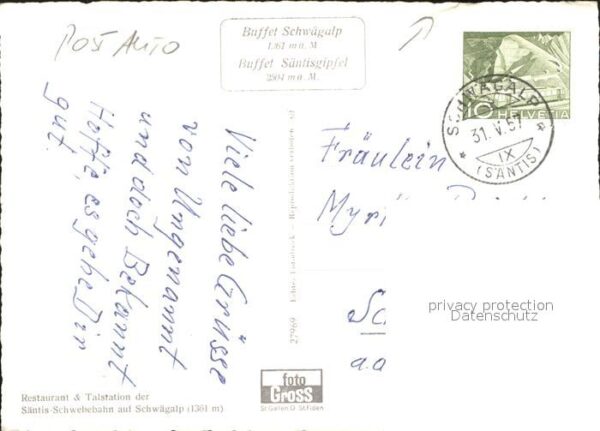 POST AUTO
Buffet Schwägalp
1361 m ü. M.
Buffet Säntisgipfel
2504 m ü. M.
10 HELVETIA
SCHWÄGALP
31. V. 57
IX
(SÄNTIS)
Viele liebe Grüsse
von Ungenannt
und doch Bekannt
Hoffe, es gehe Dir
gut.
Fräulein
privacy protection
Datenschutz
27969
foto
Gross
St Gallen O St Fiden
Restaurant & Talstation der
Säntis-Schwebebahn auf Schwägalp (1361 m)